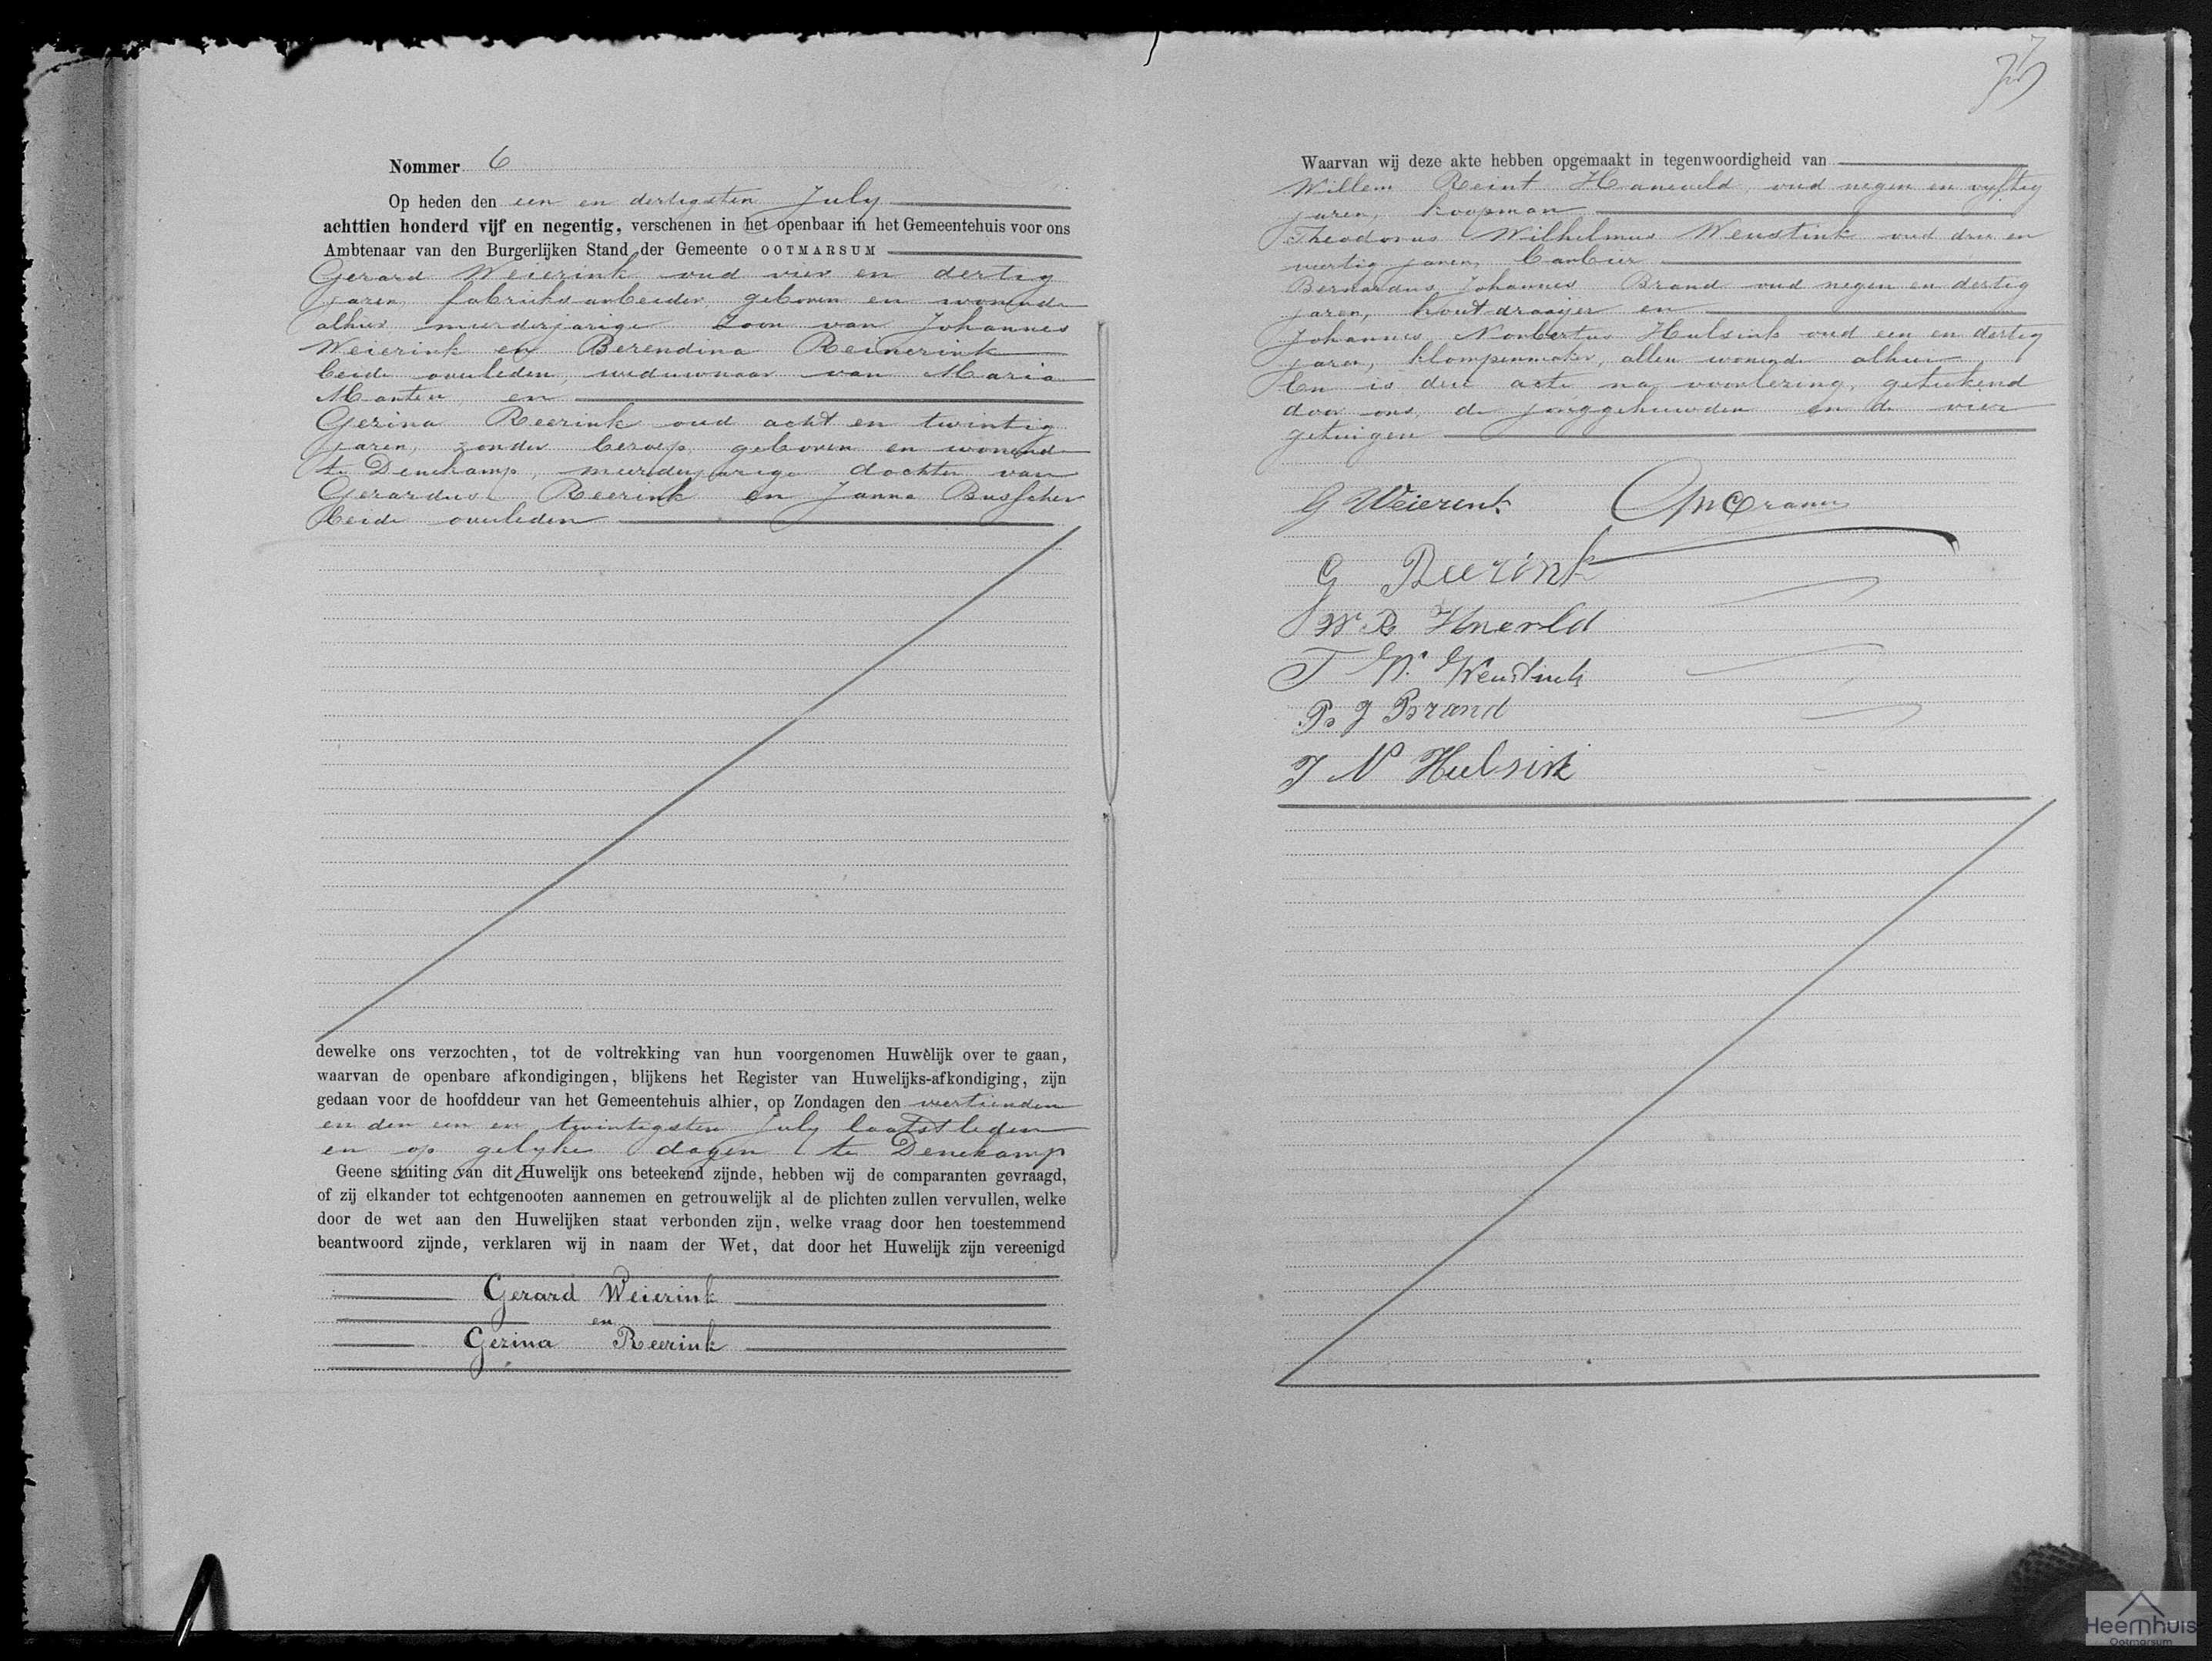 Nommer 6
Op heden den een en dertigsten July
achttien honderd vijf en negentig, verschenen in het openbaar in het Gemeentehuis voor ons
Ambtenaar van den Burgerlijken Stand der Gemeente OOTMARSUM
Gerard Weierink oud vier en dertig
jaren, fabrieksarbeider, geboren en wonende
alhier meerderjarige zoon van Johannes
Weierink en Berendina Reinerink
beide overleden, weduwnaar van Maria
en
Gezina Reerink oud acht en twintig
jaren, zonder beroep, geboren en wonende
te Denekamp, meerderjarige dochter van
Gerardus Reerink en Janna Busscher
beide overleden
dewelke ons verzochten, tot de voltrekking van hun voorgenomen Huwelijk over te gaan,
waarvan de openbare afkondigingen, blijkens het Register van Huwelijks-afkondiging, zijn
gedaan voor de hoofddeur van het Gemeentehuis alhier, op Zondagen den veertienden
en den een en twintigsten July laatstleden
en op gelyke dagen te Denekamp
Geene stuiting van dit Huwelijk ons beteekend zijnde, hebben wij de comparanten gevraagd,
of zij elkander tot echtgenooten aannemen en getrouwelijk al de plichten zullen vervullen, welke
door de wet aan den Huwelijken staat verbonden zijn, welke vraag door hen toestemmend
beantwoord zijnde, verklaren wij in naam der Wet, dat door het Huwelijk zijn vereenigd
Gerard Weierink
en
Gezina Reerink
Waarvan wij deze akte hebben opgemaakt in tegenwoordigheid van
Willem Reint oud negen en vyftig
jaren, koopman
Theodorus Wilhelmus Weustink oud drie en
veertig jaren, barbier
Bernardus Johannes Brand oud negen en dertig
jaren, houtdraaijer en
Johannes Norbertus Hulsink oud een en dertig
jaren, klompenmaker, allen wonende alhier
En is deze acte na voorlezing, geteekend
door ons, de jonggehuwden en de vier
getuigen
G Weierink
G Reerink
W R
T W. Weustink
B J Brand
J N Hulsink
Heemhuis
Ootmarsum